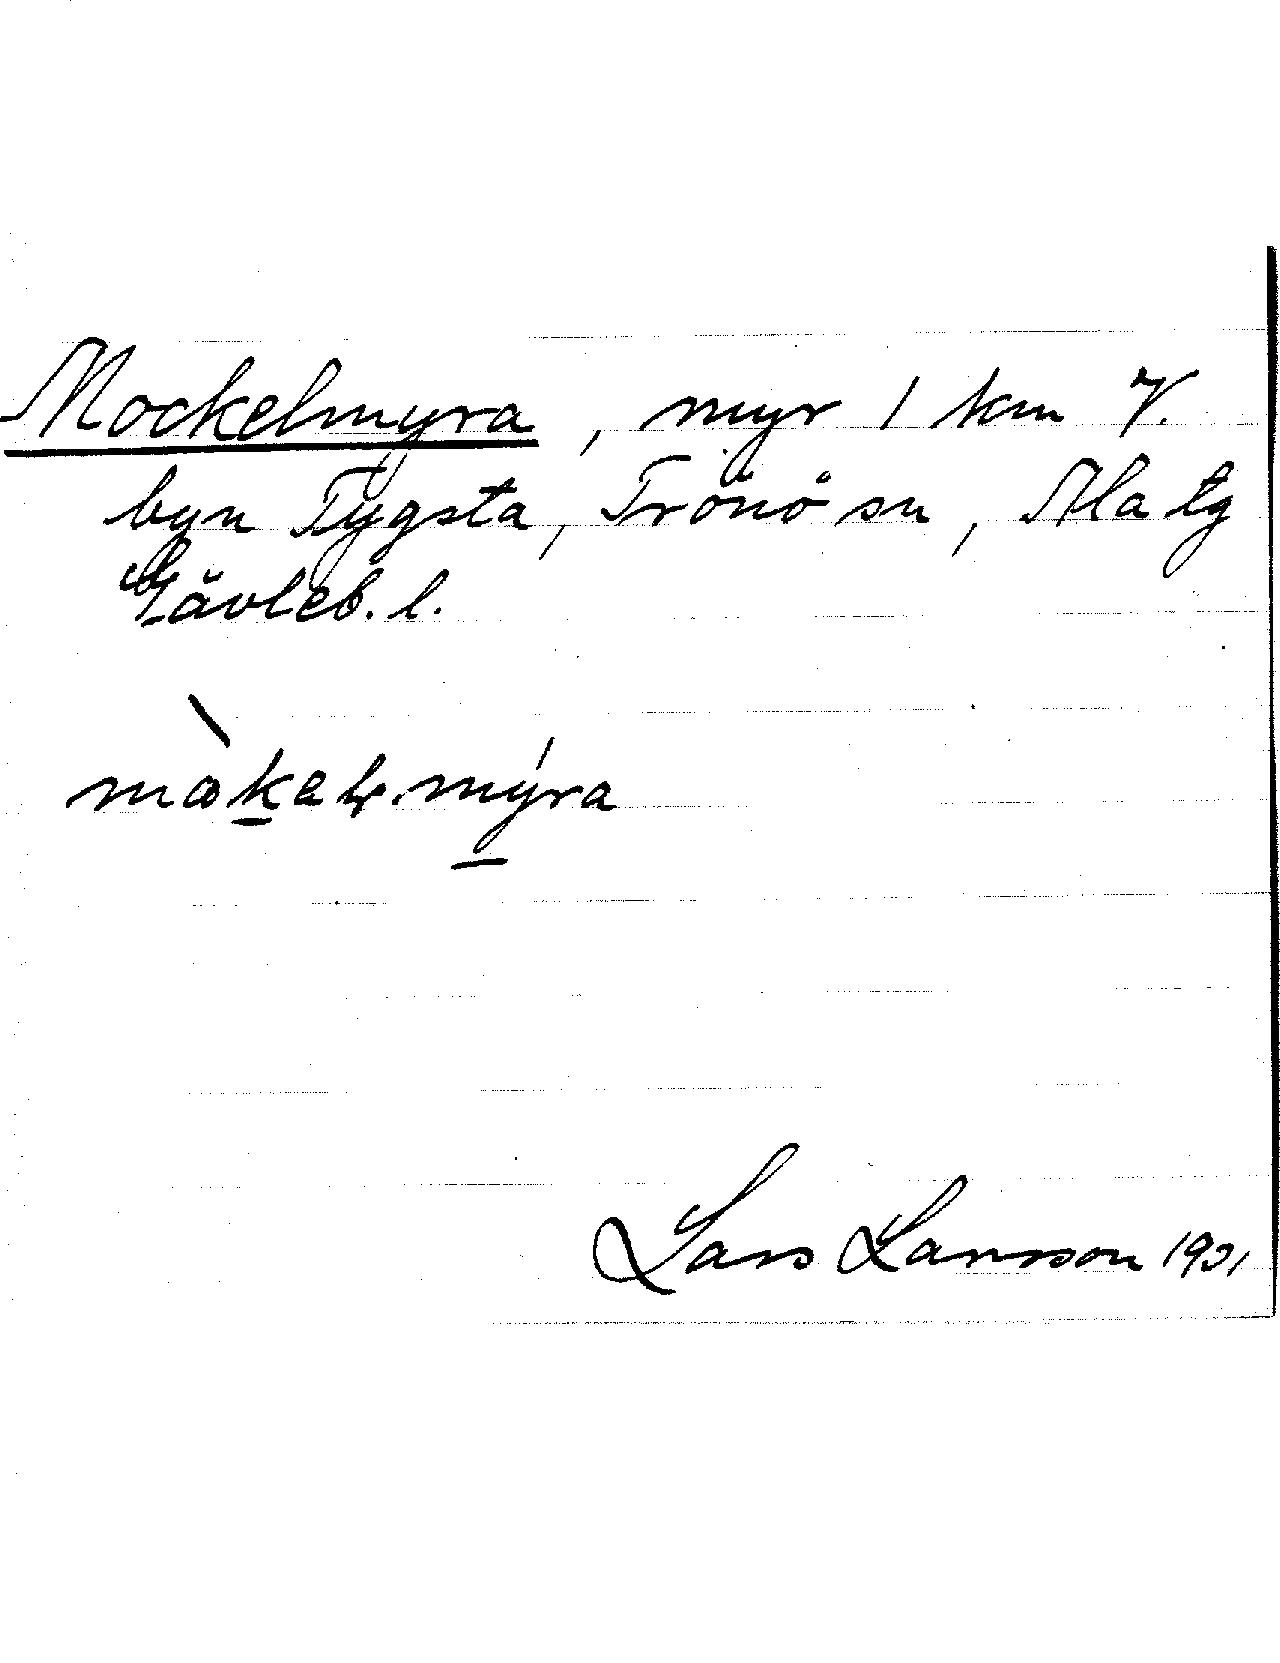 Mockelmyra, myr 1 km V.
byn Tygsta, Trönö sn, Ala tg
Gävleb. l.
Lars Larsson 1931